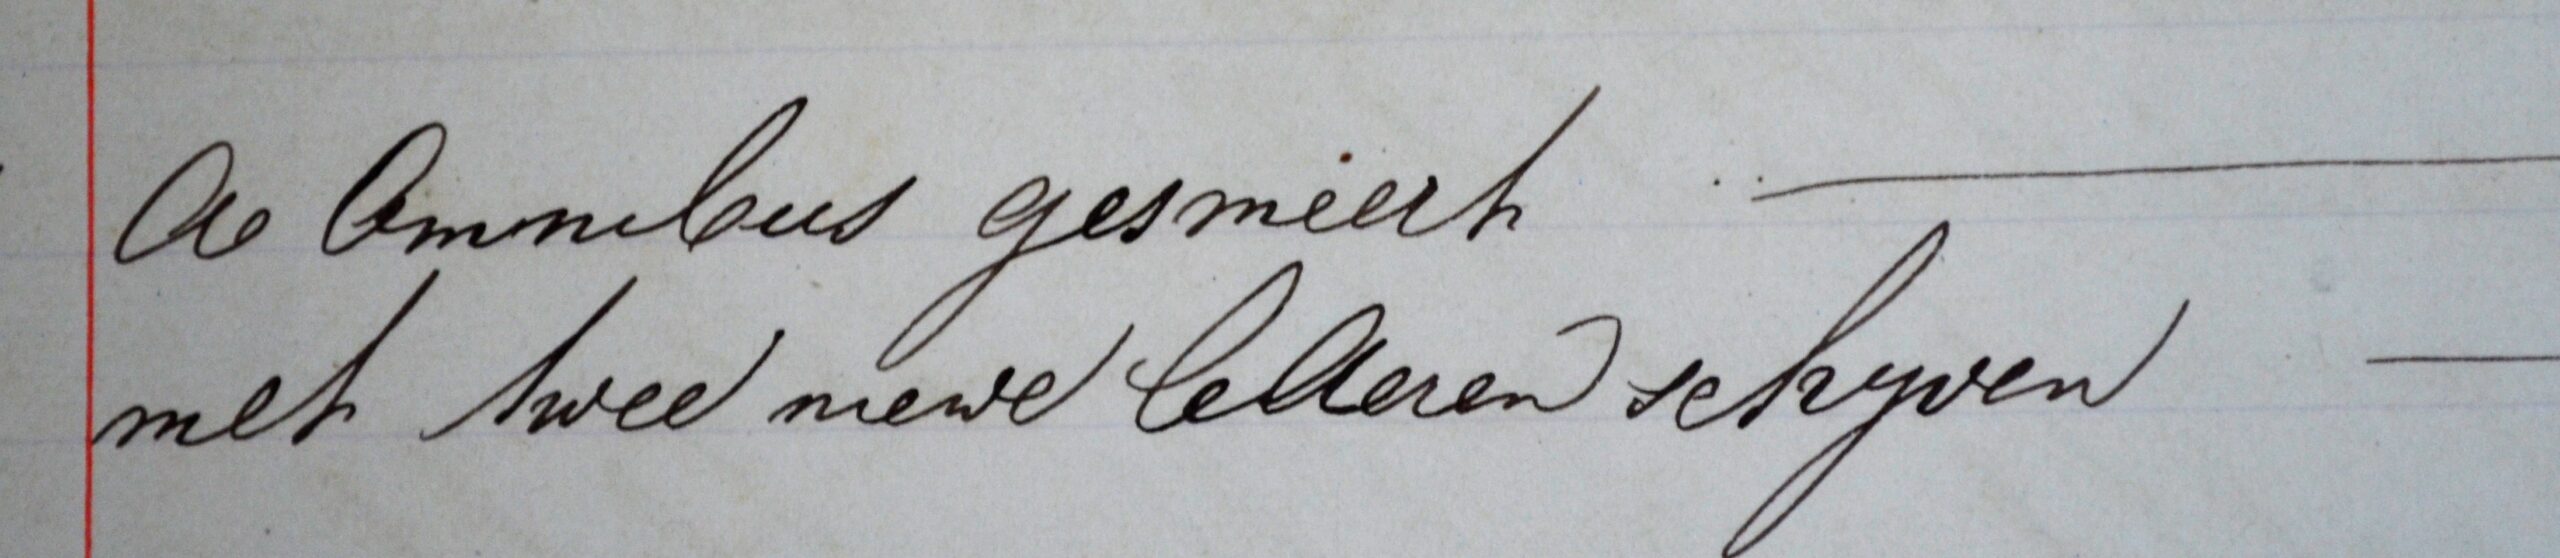 de Omnibus gesmeert
met twee niewe lederen schyven